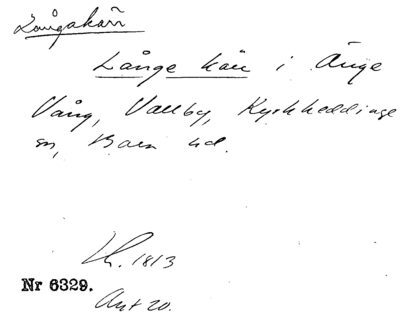 Långakärr
Långe kärr i Änge
Vång, Vallby, Kyrkheddinge
sn, Bara hd.
1813
Nr 6329.
Akt 20.